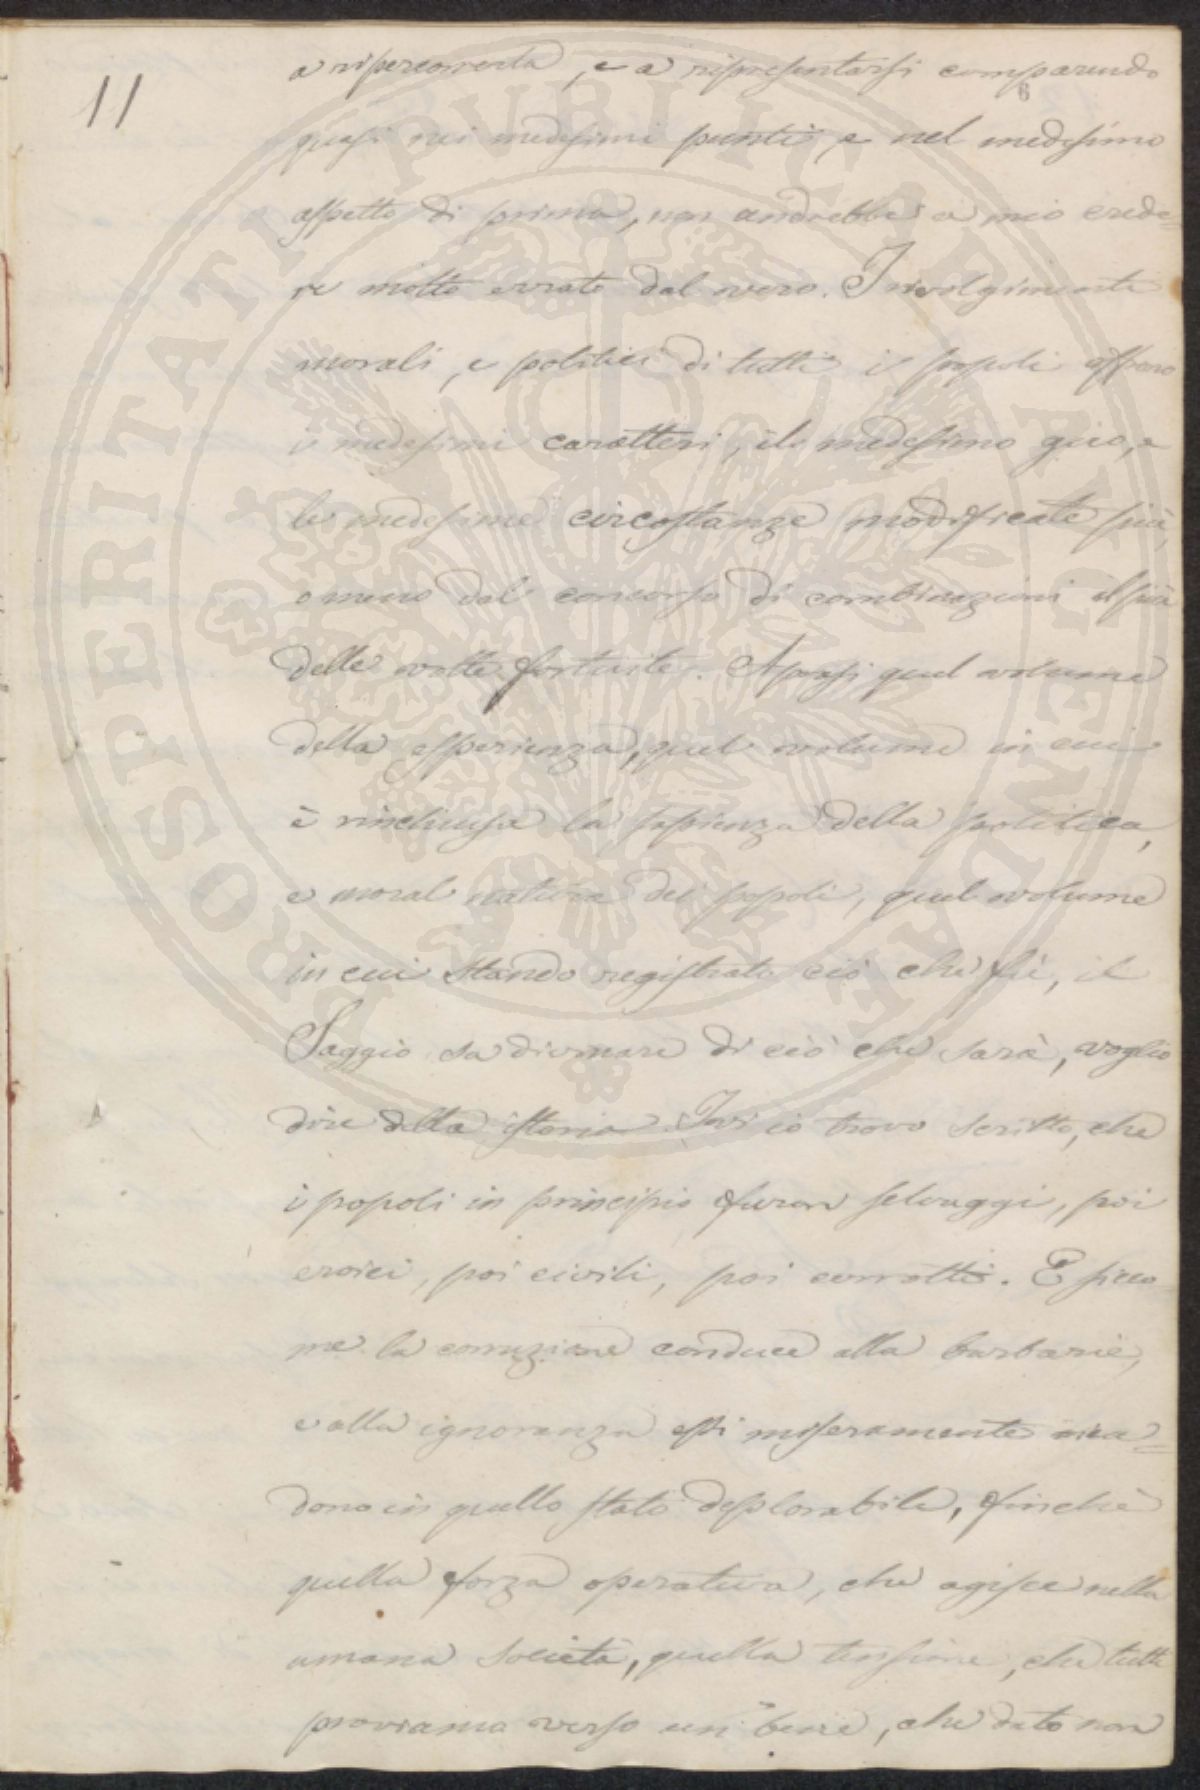 11
a ripercorrerla, e a ripresentarsi comparendo
6
quasi nei medesimi punti, e nel medesimo
aspetto di prima, non andrebbe a mio crede=
re molto errato dal vero. I rivolgimenti
morali, e politici di tutti i popoli offrono
i medesimi caratteri, il medesimo giro, e
le medesime circostanze modificate più,
o meno dal concorso di combinazioni il più
delle volte fortuite. Aprasi quel volume
della esperienza, quel volume in cui
è rinchiusa la sapienza della politica,
e moral natura dei popoli, quel volume
in cui stando registrato ciò che fù, il
Saggio sa divinare di ciò che sarà, voglio
dire della istoria. Ivi io trovo scritto, che
i popoli in principio furon selvaggi, poi
eroici, poi civili, poi corrotti. E sicco
me la corruzione conduce alla barbarie,
e alla ignoranza essi miseramente rica=
dono in quello stato deplorabile, finchè
quella forza operativa, che agisce nella
umana società, quella tensione, che tutti
proviamo verso un bene, che dato non
PROSPERITATI PUBLICAE AUGENDAE